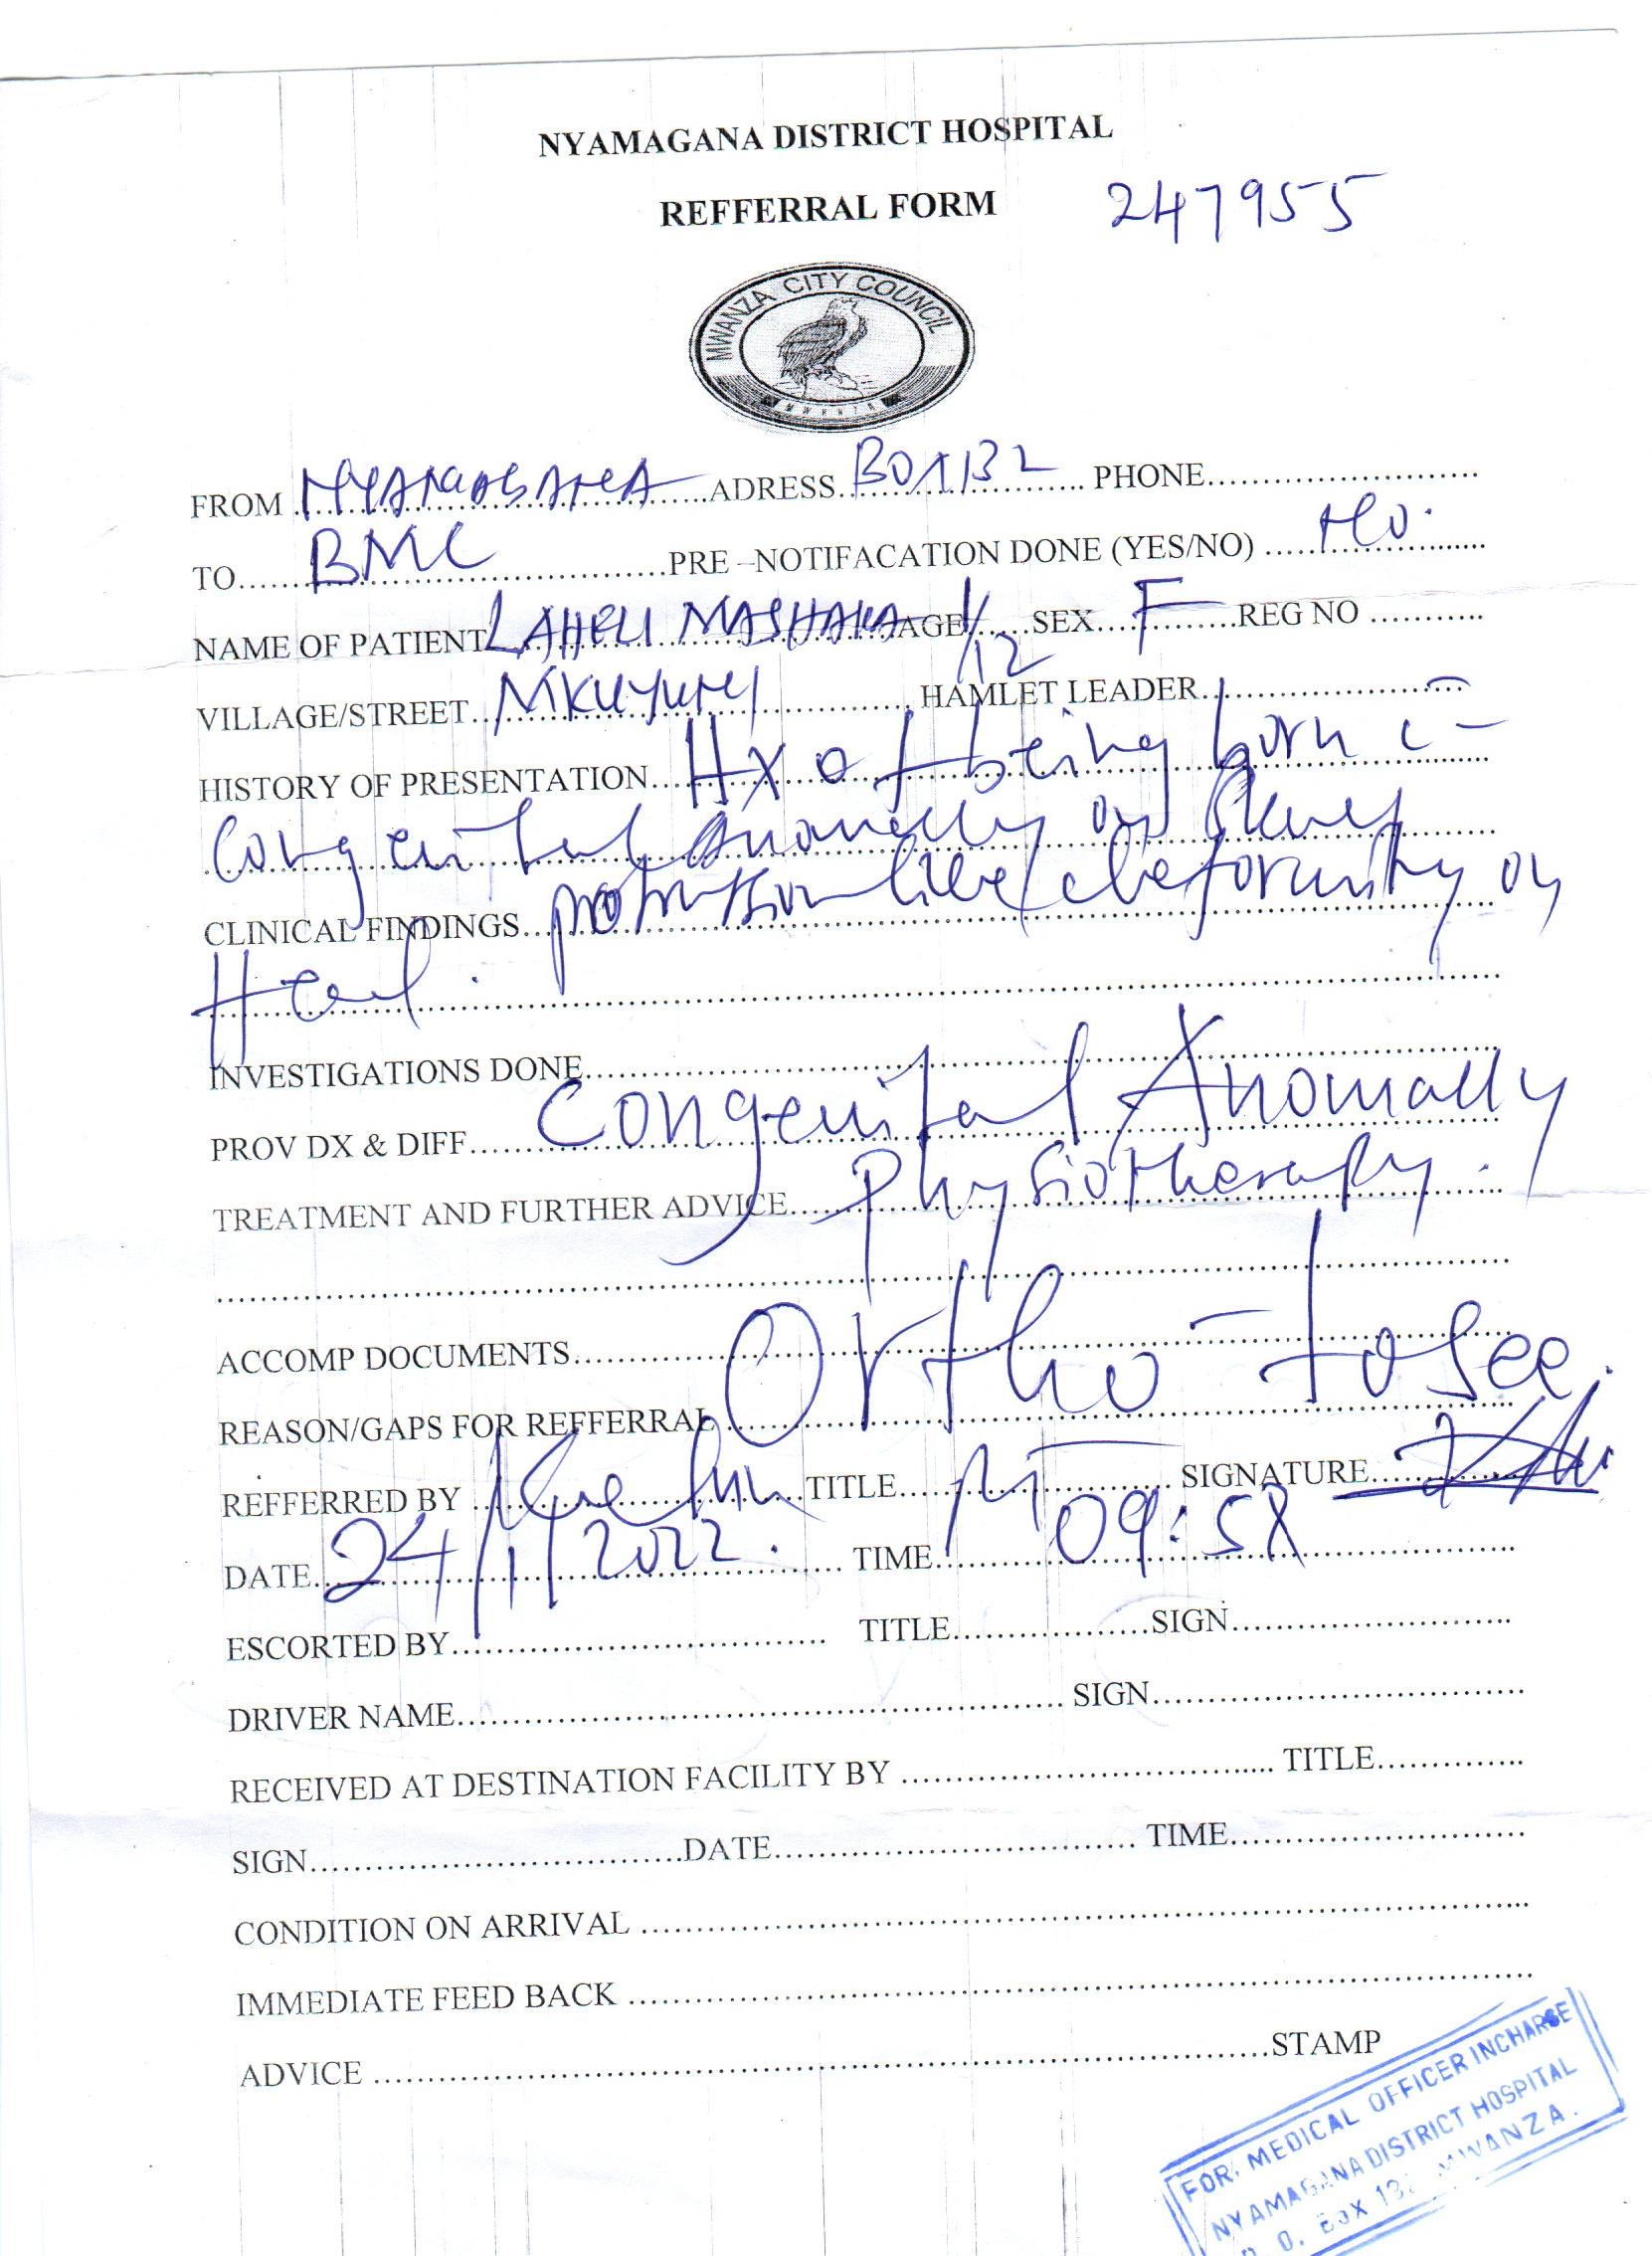 NYAMAGANA DISTRICT HOSPITAL
REFFERRAL FORM 247955
MWANZA CITY COUNCIL
MWANZA
FROM NYAMAGANA ADRESS BOX 132 PHONE
TO BMC PRE –NOTIFACATION DONE (YES/NO) No.
NAME OF PATIENT LAHELI MASHAKA AGE 1/12 SEX F REG NO
VILLAGE/STREET MKUYUNI HAMLET LEADER
HISTORY OF PRESENTATION Hx of being born c
Congenital Anomally on
CLINICAL FINDINGS protrusion like deformity on
Head.
INVESTIGATIONS DONE
PROV DX & DIFF Congenital Anomally
TREATMENT AND FURTHER ADVICE Physiotherapy.
ACCOMP DOCUMENTS
REASON/GAPS FOR REFFERRAL Ortho - to see.
REFFERRED BY TITLE SIGNATURE
DATE 24/1/2022. TIME 09:58
ESCORTED BY TITLE SIGN
DRIVER NAME SIGN
RECEIVED AT DESTINATION FACILITY BY TITLE
SIGN DATE TIME
CONDITION ON ARRIVAL
IMMEDIATE FEED BACK
ADVICE STAMP
FOR: MEDICAL OFFICER INCHARGE
NYAMAGANA DISTRICT HOSPITAL
P. O. BOX 132 MWANZA.